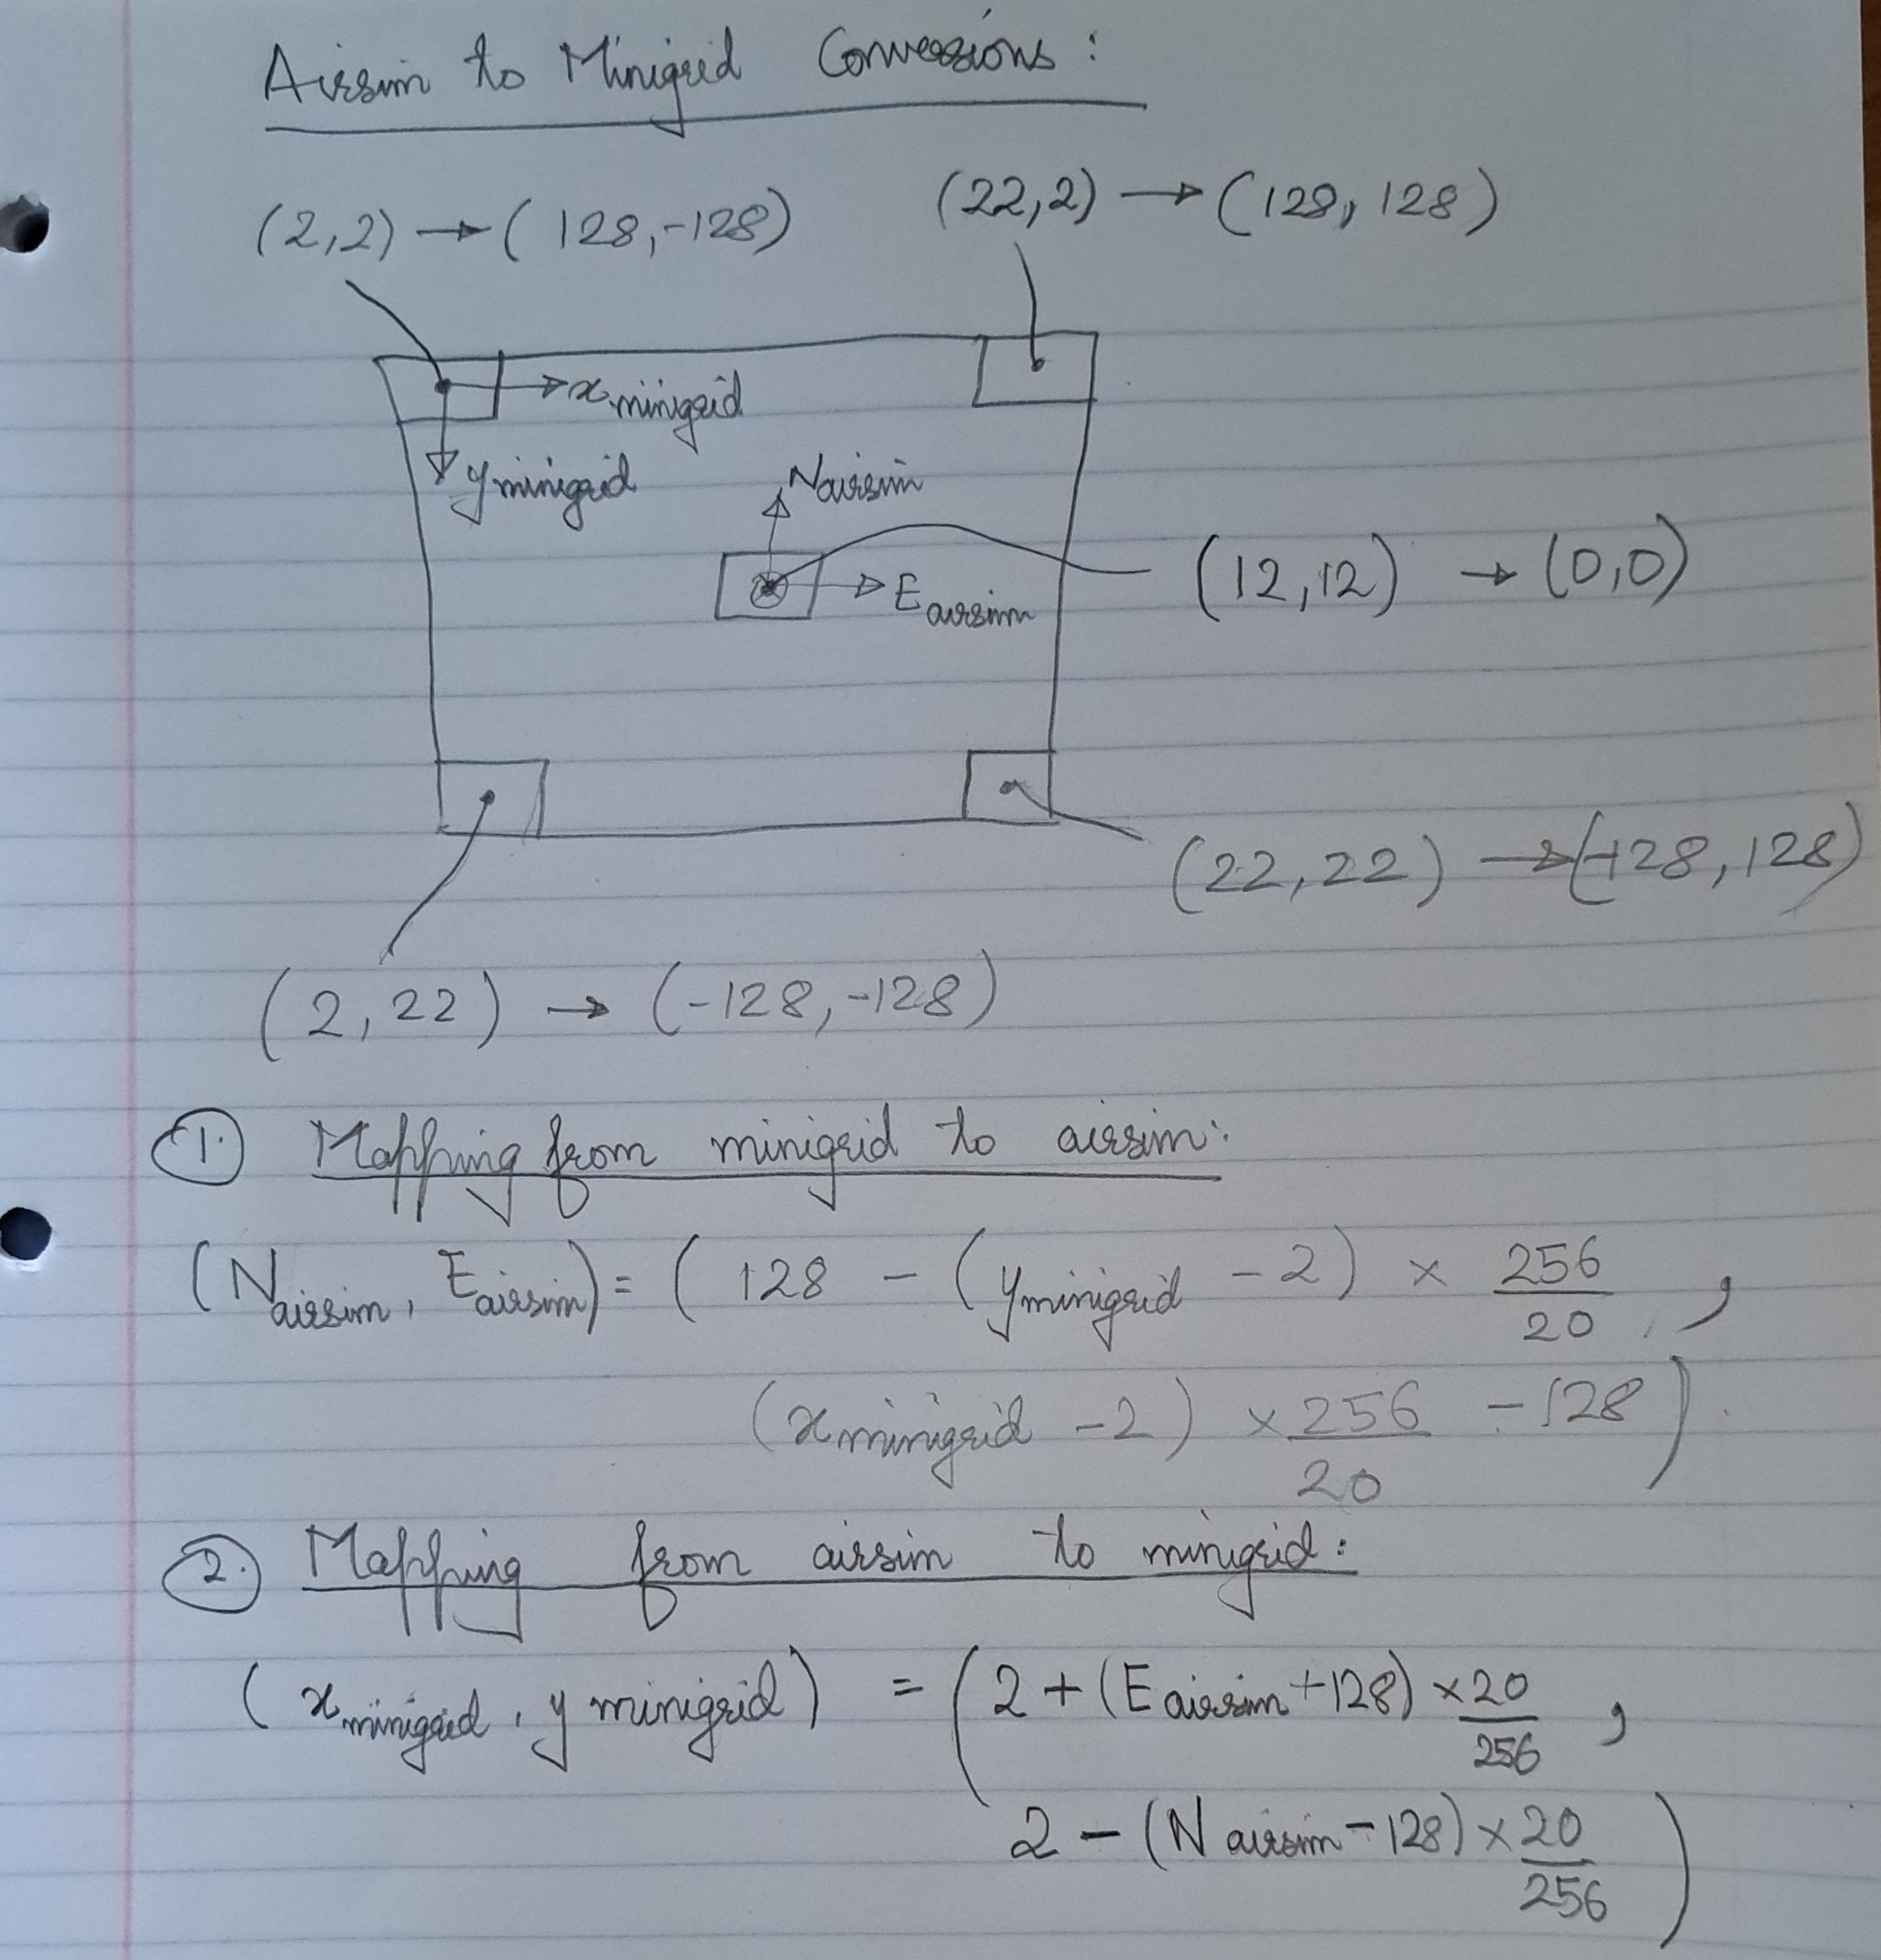 Airsim to Minigrid Conversions:
(2,2) → (128,-128)
(22,2) → (128,128)
x minigrid
y minigrid
N airsim
E airsim
(12,12) → (0,0)
(22,22) → (-128,128)
(2,22) → (-128,-128)
1. Mapping from minigrid to airsim:
(N airsim, E airsim) = (128 - (y minigrid - 2) × 256/20,
(x minigrid - 2) × 256/20 - 128)
2. Mapping from airsim to minigrid:
(x minigrid, y minigrid) = (2 + (E airsim + 128) × 20/256,
2 - (N airsim - 128) × 20/256)